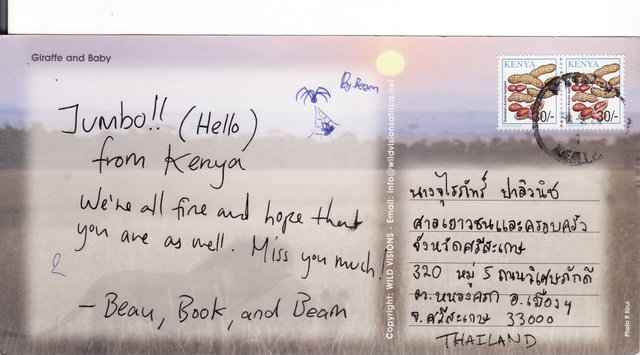 Giraffe and Baby
By Beam
Jumbo!! (Hello)
from Kenya
We're all fine and hope that
you are as well. Miss you much!
– Beau, Book, and Beam
Copyright: WILD VISIONS - Email: info@wildvisionsafrica.net
KENYA
30/-
KENYA
30/-
ศาลเยาวชนและครอบครัว
จังหวัดศรีสะเกษ
320 หมู่ 5 ถนนวิเศษภักดี
ต. หนองครก อ. เมืองฯ
จ. ศรีสะเกษ 33000
THAILAND
Photo P. Kirui